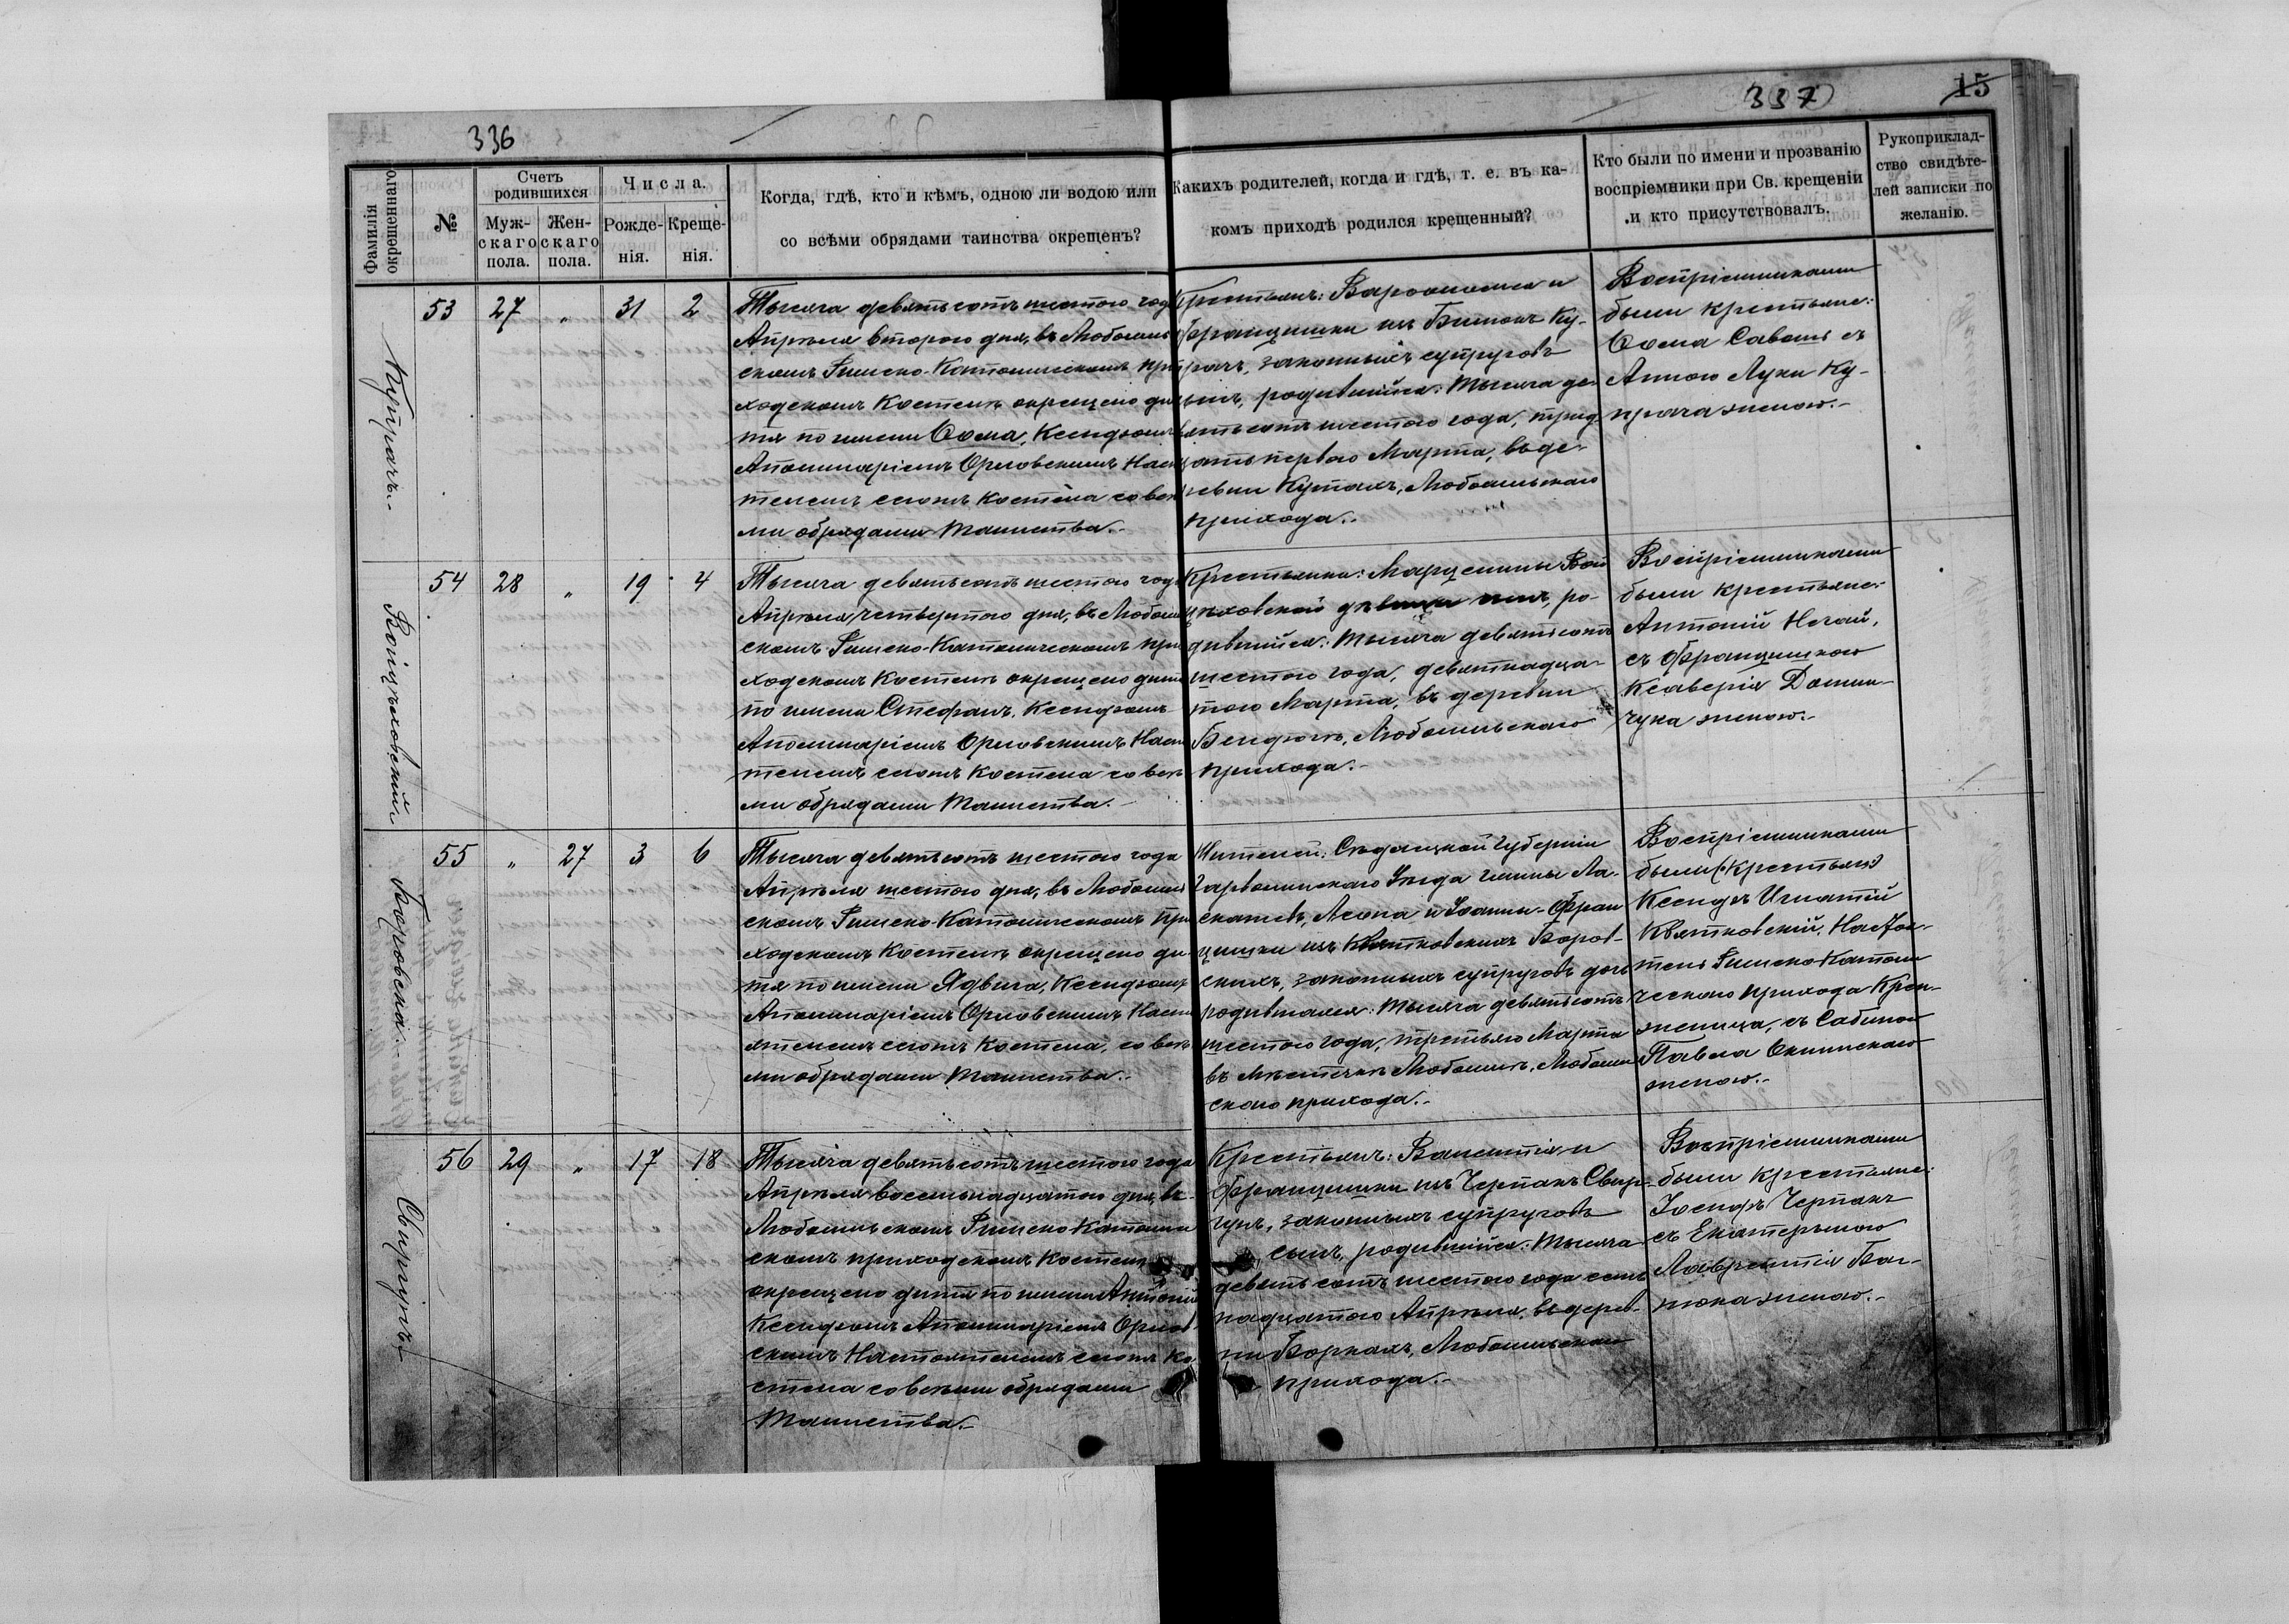 336
337
15
Фамилія окрещеннаго
№
Счетъ родившихся
Муж-скаго пола.
Жен-скаго пола.
Числа.
Рожде-нія.
Креще-нія.
Когда, гдѣ, кто и кѣмъ, одною ли водою или
со всѣми обрядами таинства окрещенъ?
Какихъ родителей, когда и гдѣ, т. е. въ ка-
комъ приходѣ родился крещенный?
Кто были по имени и прозванію
воспріемники при Св. крещеніи
и кто присутствовалъ.
Рукоприклад-
ство свидѣте-
лей записки по
желанію.
Купрачъ.-
53 27 „ 31 2
Тысяча девятьсотъ шестого года
Апрѣля второго дня, въ Любомль
скомъ Римско-Католическомъ при
ходскомъ Костелѣ окрещено ди
тя по имени Ѳома, Ксендзомъ
Аполинаріемъ Орловскимъ Наст
телемъ сего Костела со всѣ
ми обрядами Таинства.-
Крестьянъ: Варѳоломея и
Францишки изъ Ку-
рачъ, законныхъ супруговъ
сынъ, родившійся: Тысяча де
вятьсотъ шестого года, трид
цать перваго Марта, въ де-
ревни Кутахъ, Любомльскаго
прихода.-
Воспріемниками
были крестьяне:
Ѳома Савошъ съ
Анною Луки Ку-
прача женою.-
Войцѣховскій
54 28 „ 19 4
Тысяча девятьсотъ шестого года
Апрѣля четвертого дня, въ Любомль
скомъ Римско-Католическомъ при
ходскомъ Костелѣ окрещено дитя
по имени Стефанъ, Ксендзомъ
Аполинаріемъ Орловскимъ Наст
телемъ сего Костела со всѣ
ми обрядами Таинства.-
Крестьянки: Марцелины Вой
цѣховской дѣвицы сынъ, ро-
дившійся: Тысяча девятьсотъ
шестого года, девятнадца-
того Марта, въ деревни
Бендюгѣ, Любомльскаго
прихода.-
Воспріемниками
были крестьяне:
Антоній Нечай,
съ Францишкою
Ксаверія
женою.-
Боровска.-
55 „ 27 3 6
Тысяча девятьсотъ шестого года
Апрѣля шестого дня, въ Любомль
скомъ Римско-Католическомъ При
ходскомъ Костелѣ окрещено ди
тя по имени Ядвига, Ксендзомъ
Аполинаріемъ Орловскимъ Насто
ятелемъ сего Костела, со всѣ
ми обрядами Таинства.-
Жителей: Сѣдлецкой Губерніи
Гарволинскаго Уѣзда гмины Ла-
скажевъ, Леона и Іоанны-Фран
цишки изъ Квятковскихъ Боров-
скихъ, законныхъ супруговъ дочь
родившаяся: Тысяча девятьсотъ
шестого года, третьяго Марта
въ мѣстечкѣ Любомлѣ, Любомль
скаго прихода.-
Воспріемниками
были (крестьяне)
Ксендзъ Игнатій
Квятковскій, Настоя-
тель Римско Католи
ческаго прихода Крем-
женица, съ Сабиною
Павла Окнинскаго
женою.-
Свирчукъ
56 29 „ 17 18
Тысяча девятьсотъ шестого года
Апрѣля восемьнадцатого дня, въ
Любомльскомъ Римско Католиче
скомъ приходскомъ Костелѣ
окрещено дитя по имени Антоній
Ксендзомъ Аполинаріемъ Орлов-
скимъ Настоятелемъ сего Ко
стела со всѣми обрядами
Таинства.-
Крестьянъ: Валентія и
Францишки изъ Черпакъ Свир-
чукъ, законныхъ супруговъ
сынъ, родившійся: Тысяча
девятьсотъ шестого года семь
надцатого Апрѣля, въ дерев-
ни Боркахъ, Любомльскаго
прихода.-
Воспріемниками
были крестьяне:
Іосифъ Черпакъ
съ Екатериною
Лаврентія
женою.-